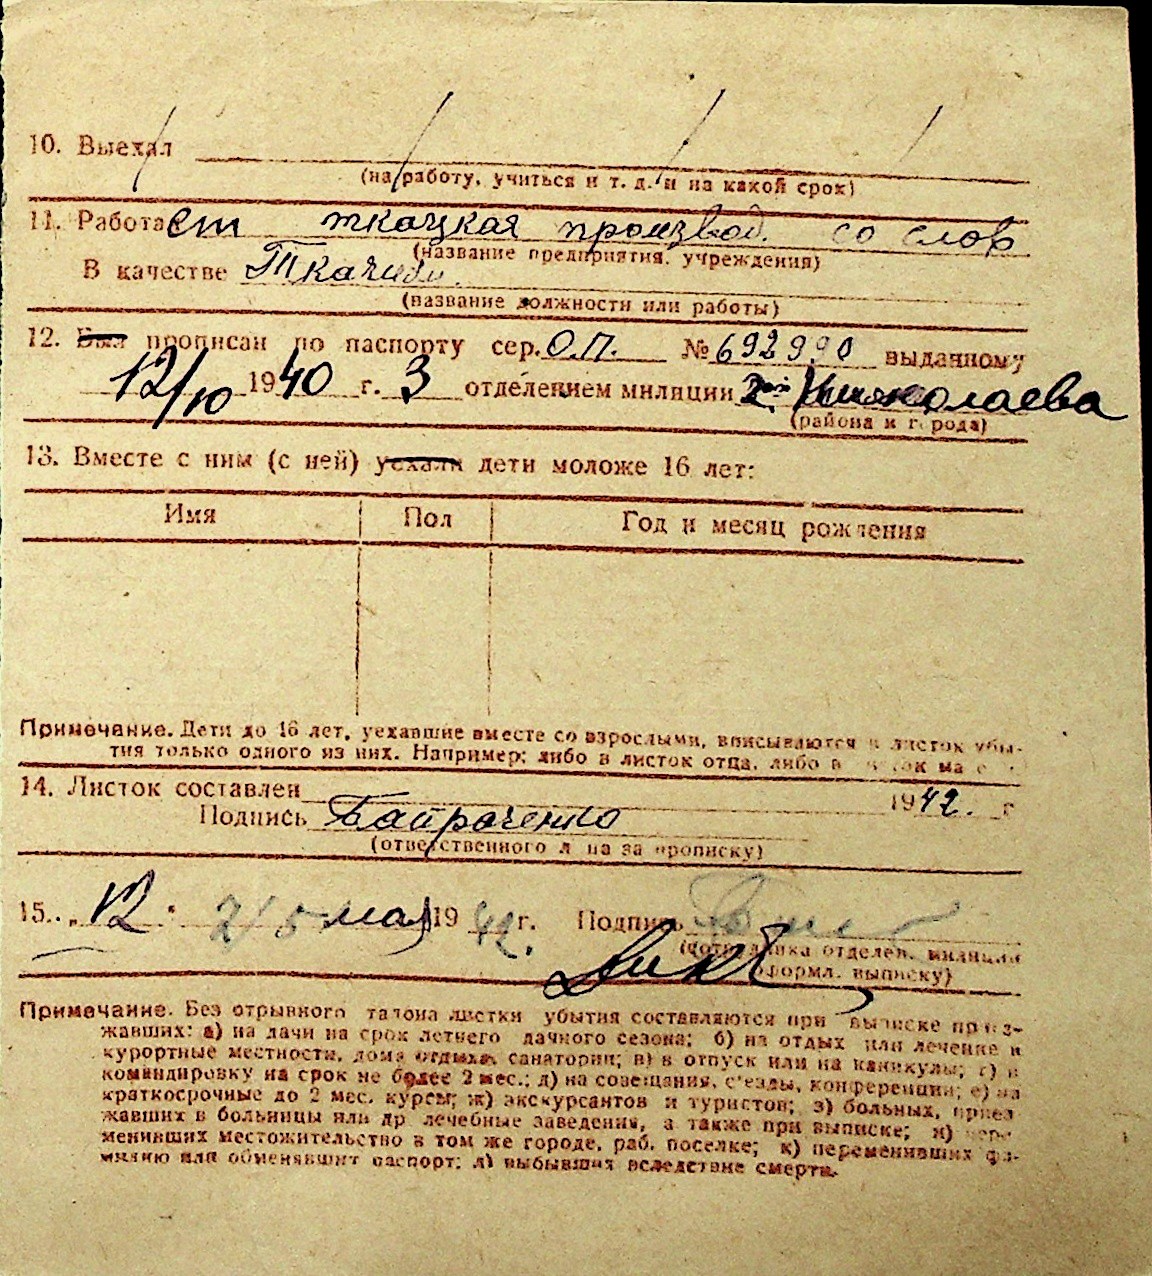 10. Выехал
(на работу, учиться и т. д. и на какой срок)
11. Работает ткацкая произвед. со слов
(название предприятия, учреждения)
В качестве Ткачихи
(название должности или работы)
12. Был прописан по паспорту сер. О.П. № 692990 выданному
12/10 1940 г. 3 отделением милиции Николаева
(района и города)
13. Вместе с ним (с ней) уехали дети моложе 16 лет:
Имя Пол Год и месяц рождения
Примечание. Дети до 16 лет, уехавшие вместе со взрослыми, вписываются в листок убы-
тия только одного из них. Например: либо в листок отца, либо в
14. Листок составлен 1942. г
Подпись
(ответственного лица за прописку)
15. „12" мая 1942. г. Подпись
(сотрудника отделен. милиции
оформл. выписку)
Примечание. Без отрывного талона листки убытия составляются при выписке приез-
жавших: а) на дачи на срок летнего дачного сезона; б) на отдых или лечение в
курортные местности, дома отдыха, санатории; в) в отпуск или на каникулы; г) в
командировку на срок не более 2 мес.; д) на совещания, съезды, конференции; е) на
краткосрочные до 2 мес. курсы; ж) экскурсантов и туристов; з) больных, приез
жавших в больницы или др лечебные заведения, а также при выписке; и) пере
менивших местожительство в том же городе, раб. поселке; к) переменивших фа-
милию или обменявших паспорт; л) выбывших вследствие смерти.